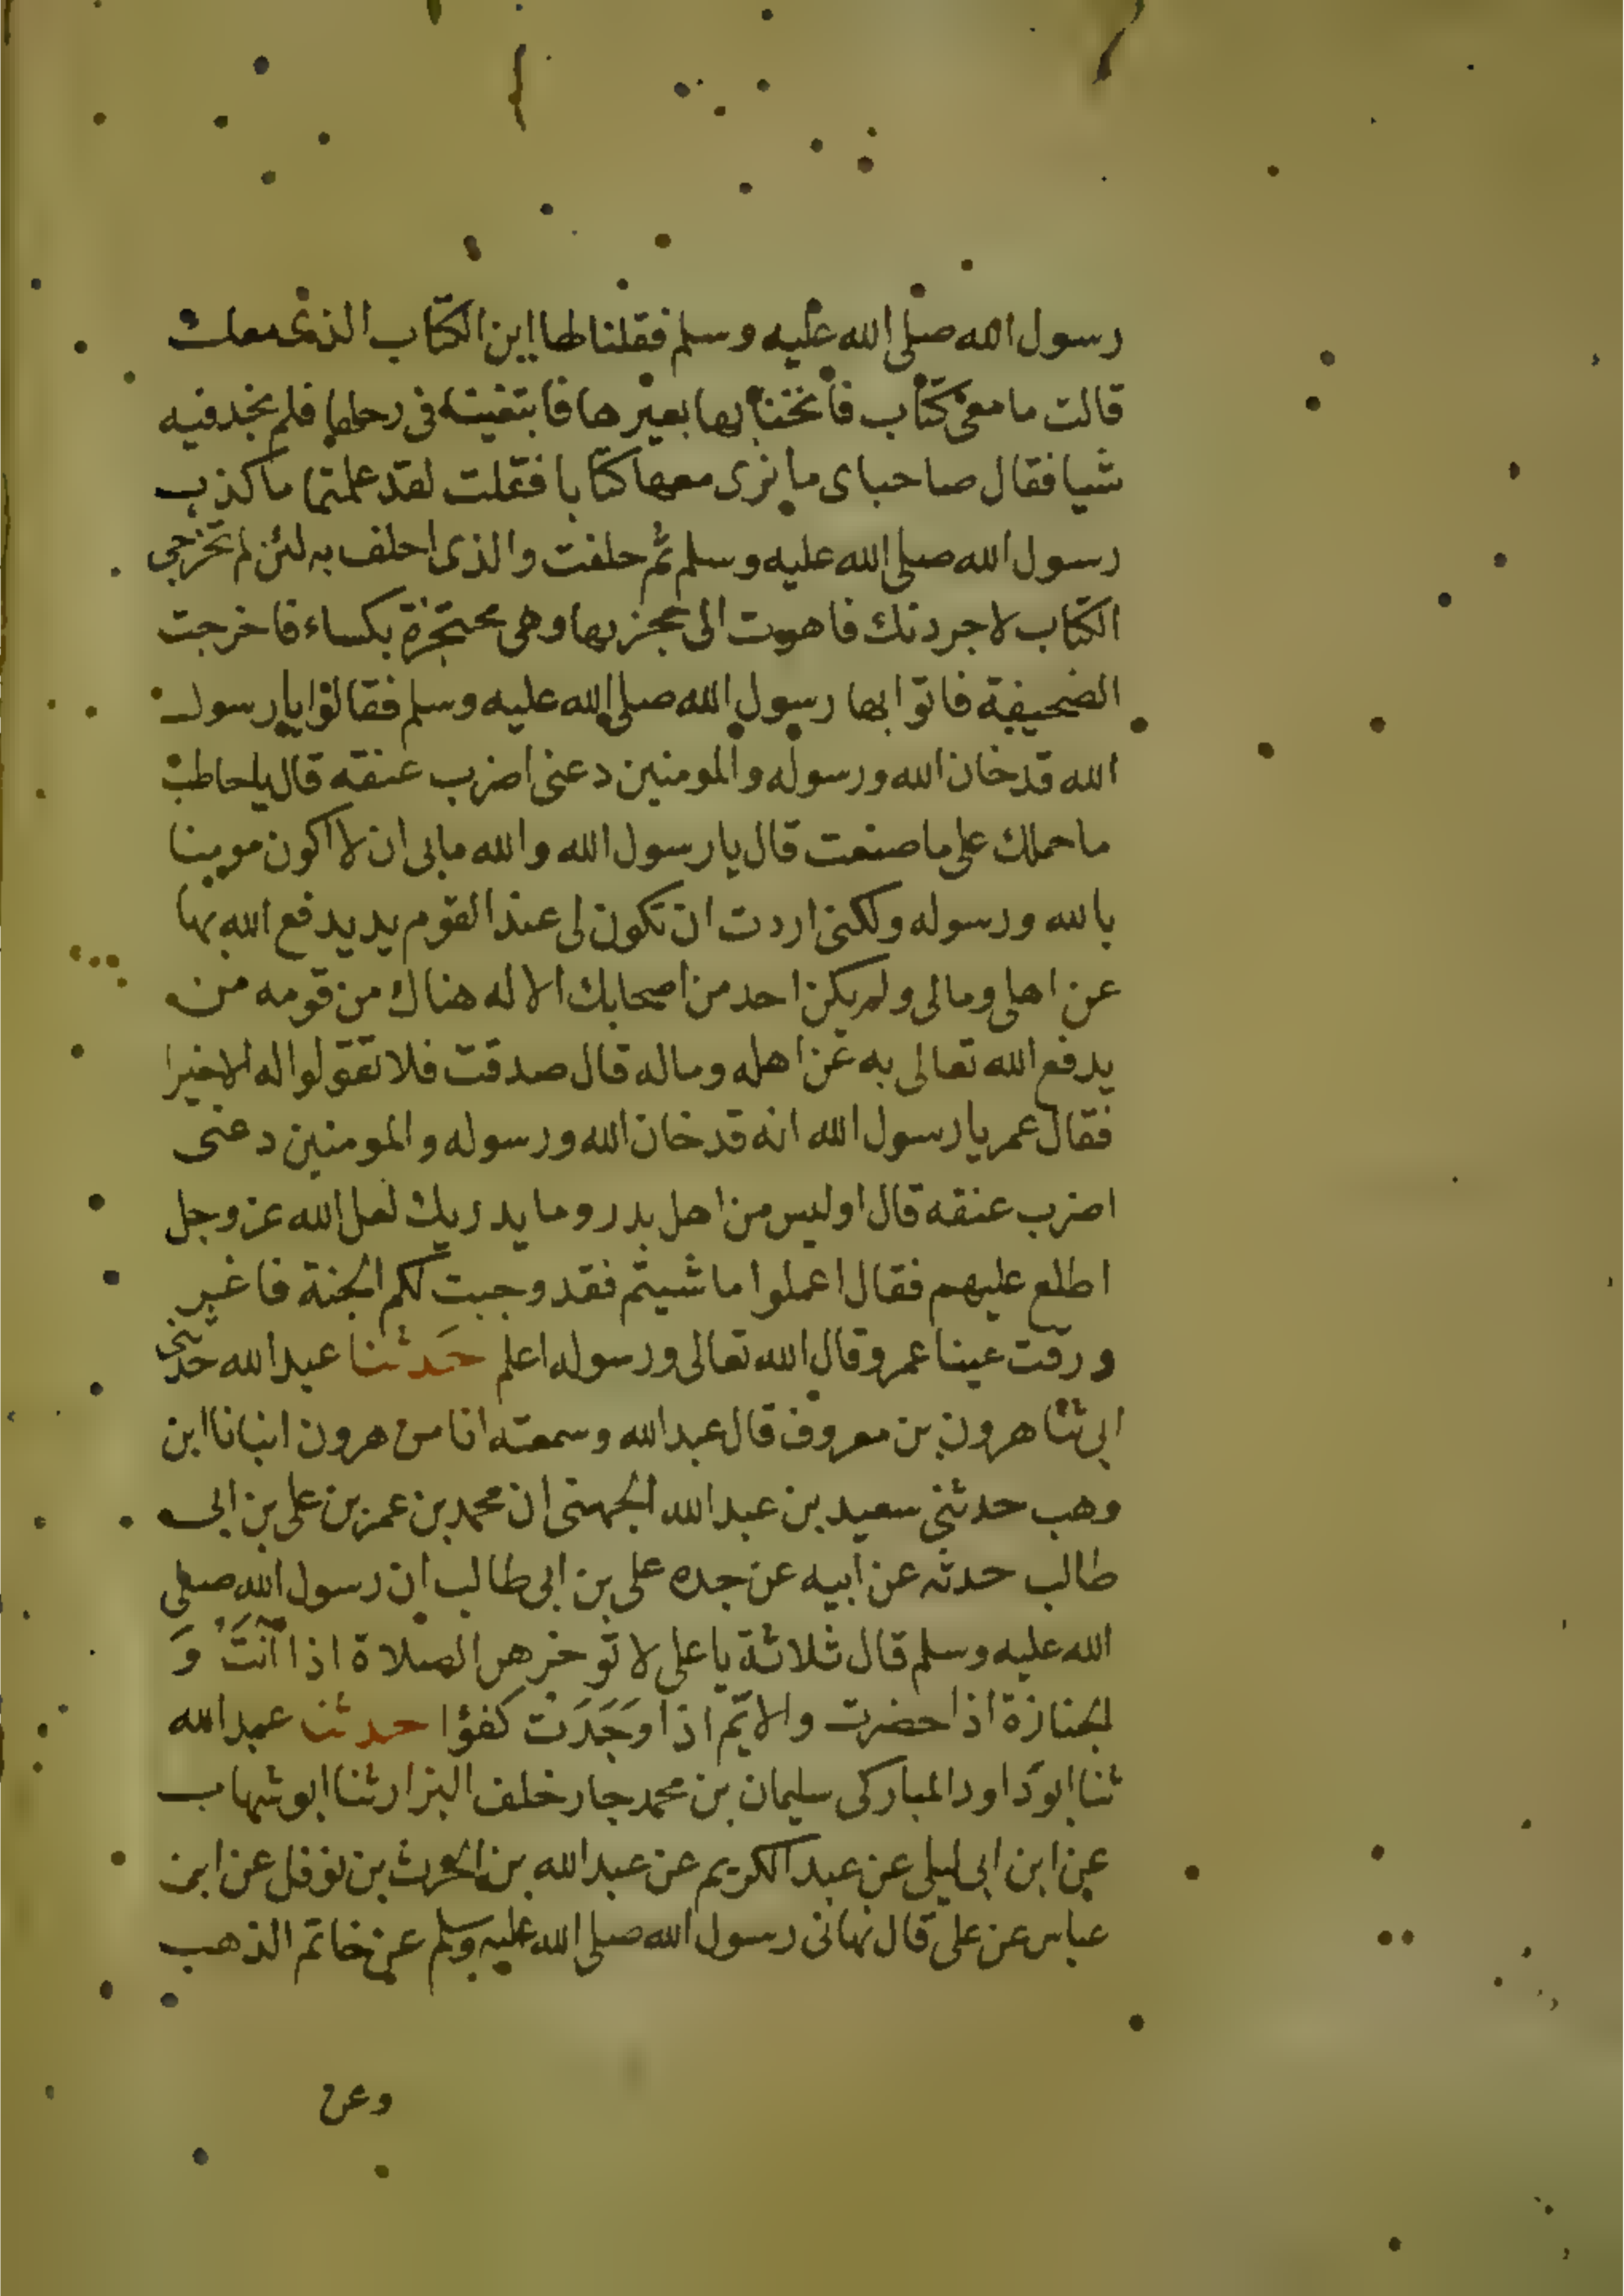 رسول الله صلى الله عليه وسلم فقلنا لها اين الكتاب الذى معك
قالت ما معى كتاب فانخنا بها بعيرها فابتغينه فى رحلها فلم نجد فيه
شيا فقال صاحباى ما نرى معها كتابا فقلت لقد علمتما ما كذب
رسول الله صلى الله عليه وسلم ثم حلفت والذى احلف به لئن لم تخرجي
الكتاب لاجردنك فاهوت الى حجزتها وهى محتجزة بكساء فاخرجت
الصحيفة فاتوا بها رسول الله صلى الله عليه وسلم فقالوا يا رسول
الله قد خان الله ورسوله والمومنين دعنى اضرب عنقه قال يا حاطب
ما حملك على ما صنعت قال يا رسول الله والله ما بى ان لا اكون مومنا
بالله ورسوله ولكنى اردت ان تكون لى عند القوم يد يدفع الله بها
عن اهلى ومالى ولم يكن احد من اصحابك الا له هناك من قومه من
يدفع الله تعالى به عن اهله وماله قال صدقت فلا تقولوا له الا خيرا
فقال عمر يا رسول الله انه قد خان الله ورسوله والمومنين دعنى
اضرب عنقه قال اوليس من اهل بدر وما يدريك لعل الله عز وجل
اطلع عليهم فقال اعملوا ما شيتم فقد وجبت لكم الجنة فاغبر
ورقت عينا عمر وقال الله تعالى ورسوله اعلم حَدثنا عبد الله حدثنى
ابى ثنا هرون بن معروف قال عبد الله وسمعته انا من هرون انبانا ابن
وهب حدثنى سعيد بن عبد الله الجهنى ان محمد بن عمر بن على بن ابى
طالب حدثه عن ابيه عن جده على بن ابى طالب ان رسول الله صلى
الله عليه وسلم قال ثلاثة يا على لا توخرهن الصلاة اذا آنَتْ وَ
الجنازة اذا حضرت والايّم اذا وَجَدَتْ كفؤا حدثنا عبد الله
ثنا ابو داود المباركى سليمان بن محمد جار خلف البزار ثنا ابو شهاب
عن ابن ابى ليلى عن عبد الكريم عن عبد الله بن الحرث بن نوفل عن ابن
عباس عن على قال نهانى رسول الله صلى الله عليه وسلم عن خاتم الذهب
وعن